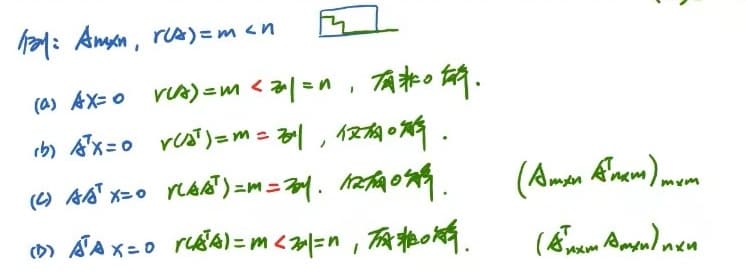 例: Am×n, r(A)=m<n
(a) AX=0 r(A)=m<列=n, 有非0解.
(b) AᵀX=0 r(Aᵀ)=m=列, 仅有0解.
(C) AAᵀX=0 r(AAᵀ)=m=列. 仅有0解. (Am×n Aᵀn×m)m×m
(D) AᵀAX=0 r(AᵀA)=m<列=n, 有非0解. (Aᵀn×m Am×n)n×n